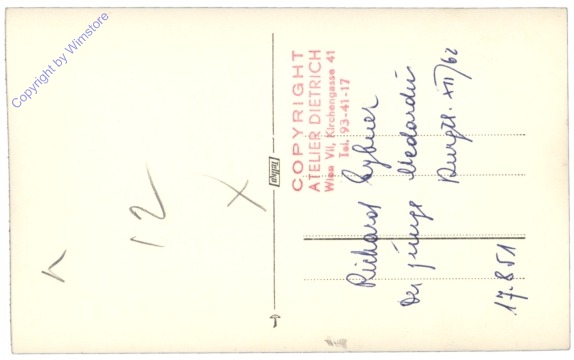 Copyright by Wimstore
COPYRIGHT
ATELIER DIETRICH
Wien VII, Kirchengasse 41
Tel. 93-41-17
Richard Eybner
Der junge Medardus
Burgth. XII/62
17.851
12
X